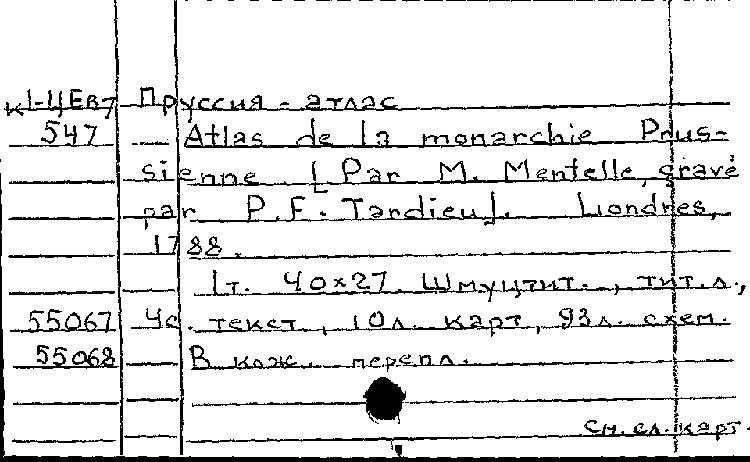 к1-ЦЕв7 Пруссия - атлас
547 Atlas de la monarchie Prus-
sienne [Par M. Mentelle, gravé
par P.F. Tardieu]. Londres,
1788.
1т. 40x27. Шмуцтит., тит.л.,
55067 4с. текст, 10л. карт, 93л. схем.
55068 В кож. перепл.
См. сл. карт.